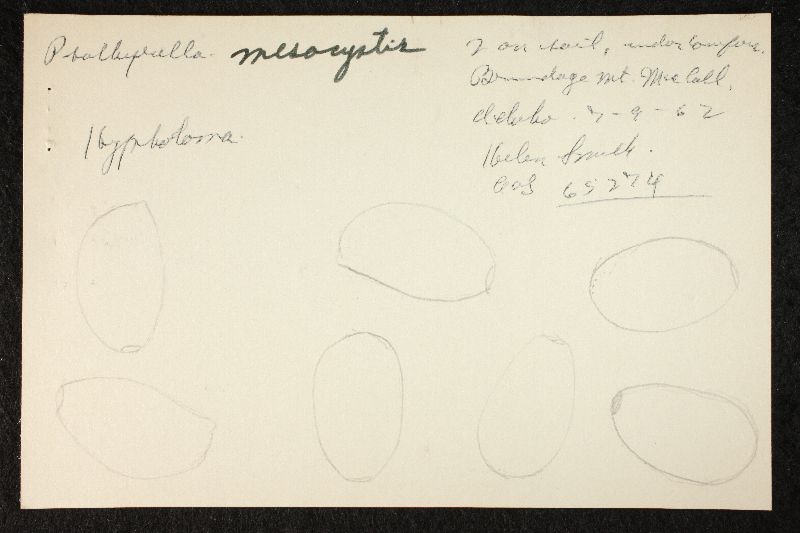 Psathyrella mesocystis
Hypholoma
on soil, under conifers.
Brundage Mt. McCall,
Idaho. 7-9-62
Helen Smith.
AHS 65274